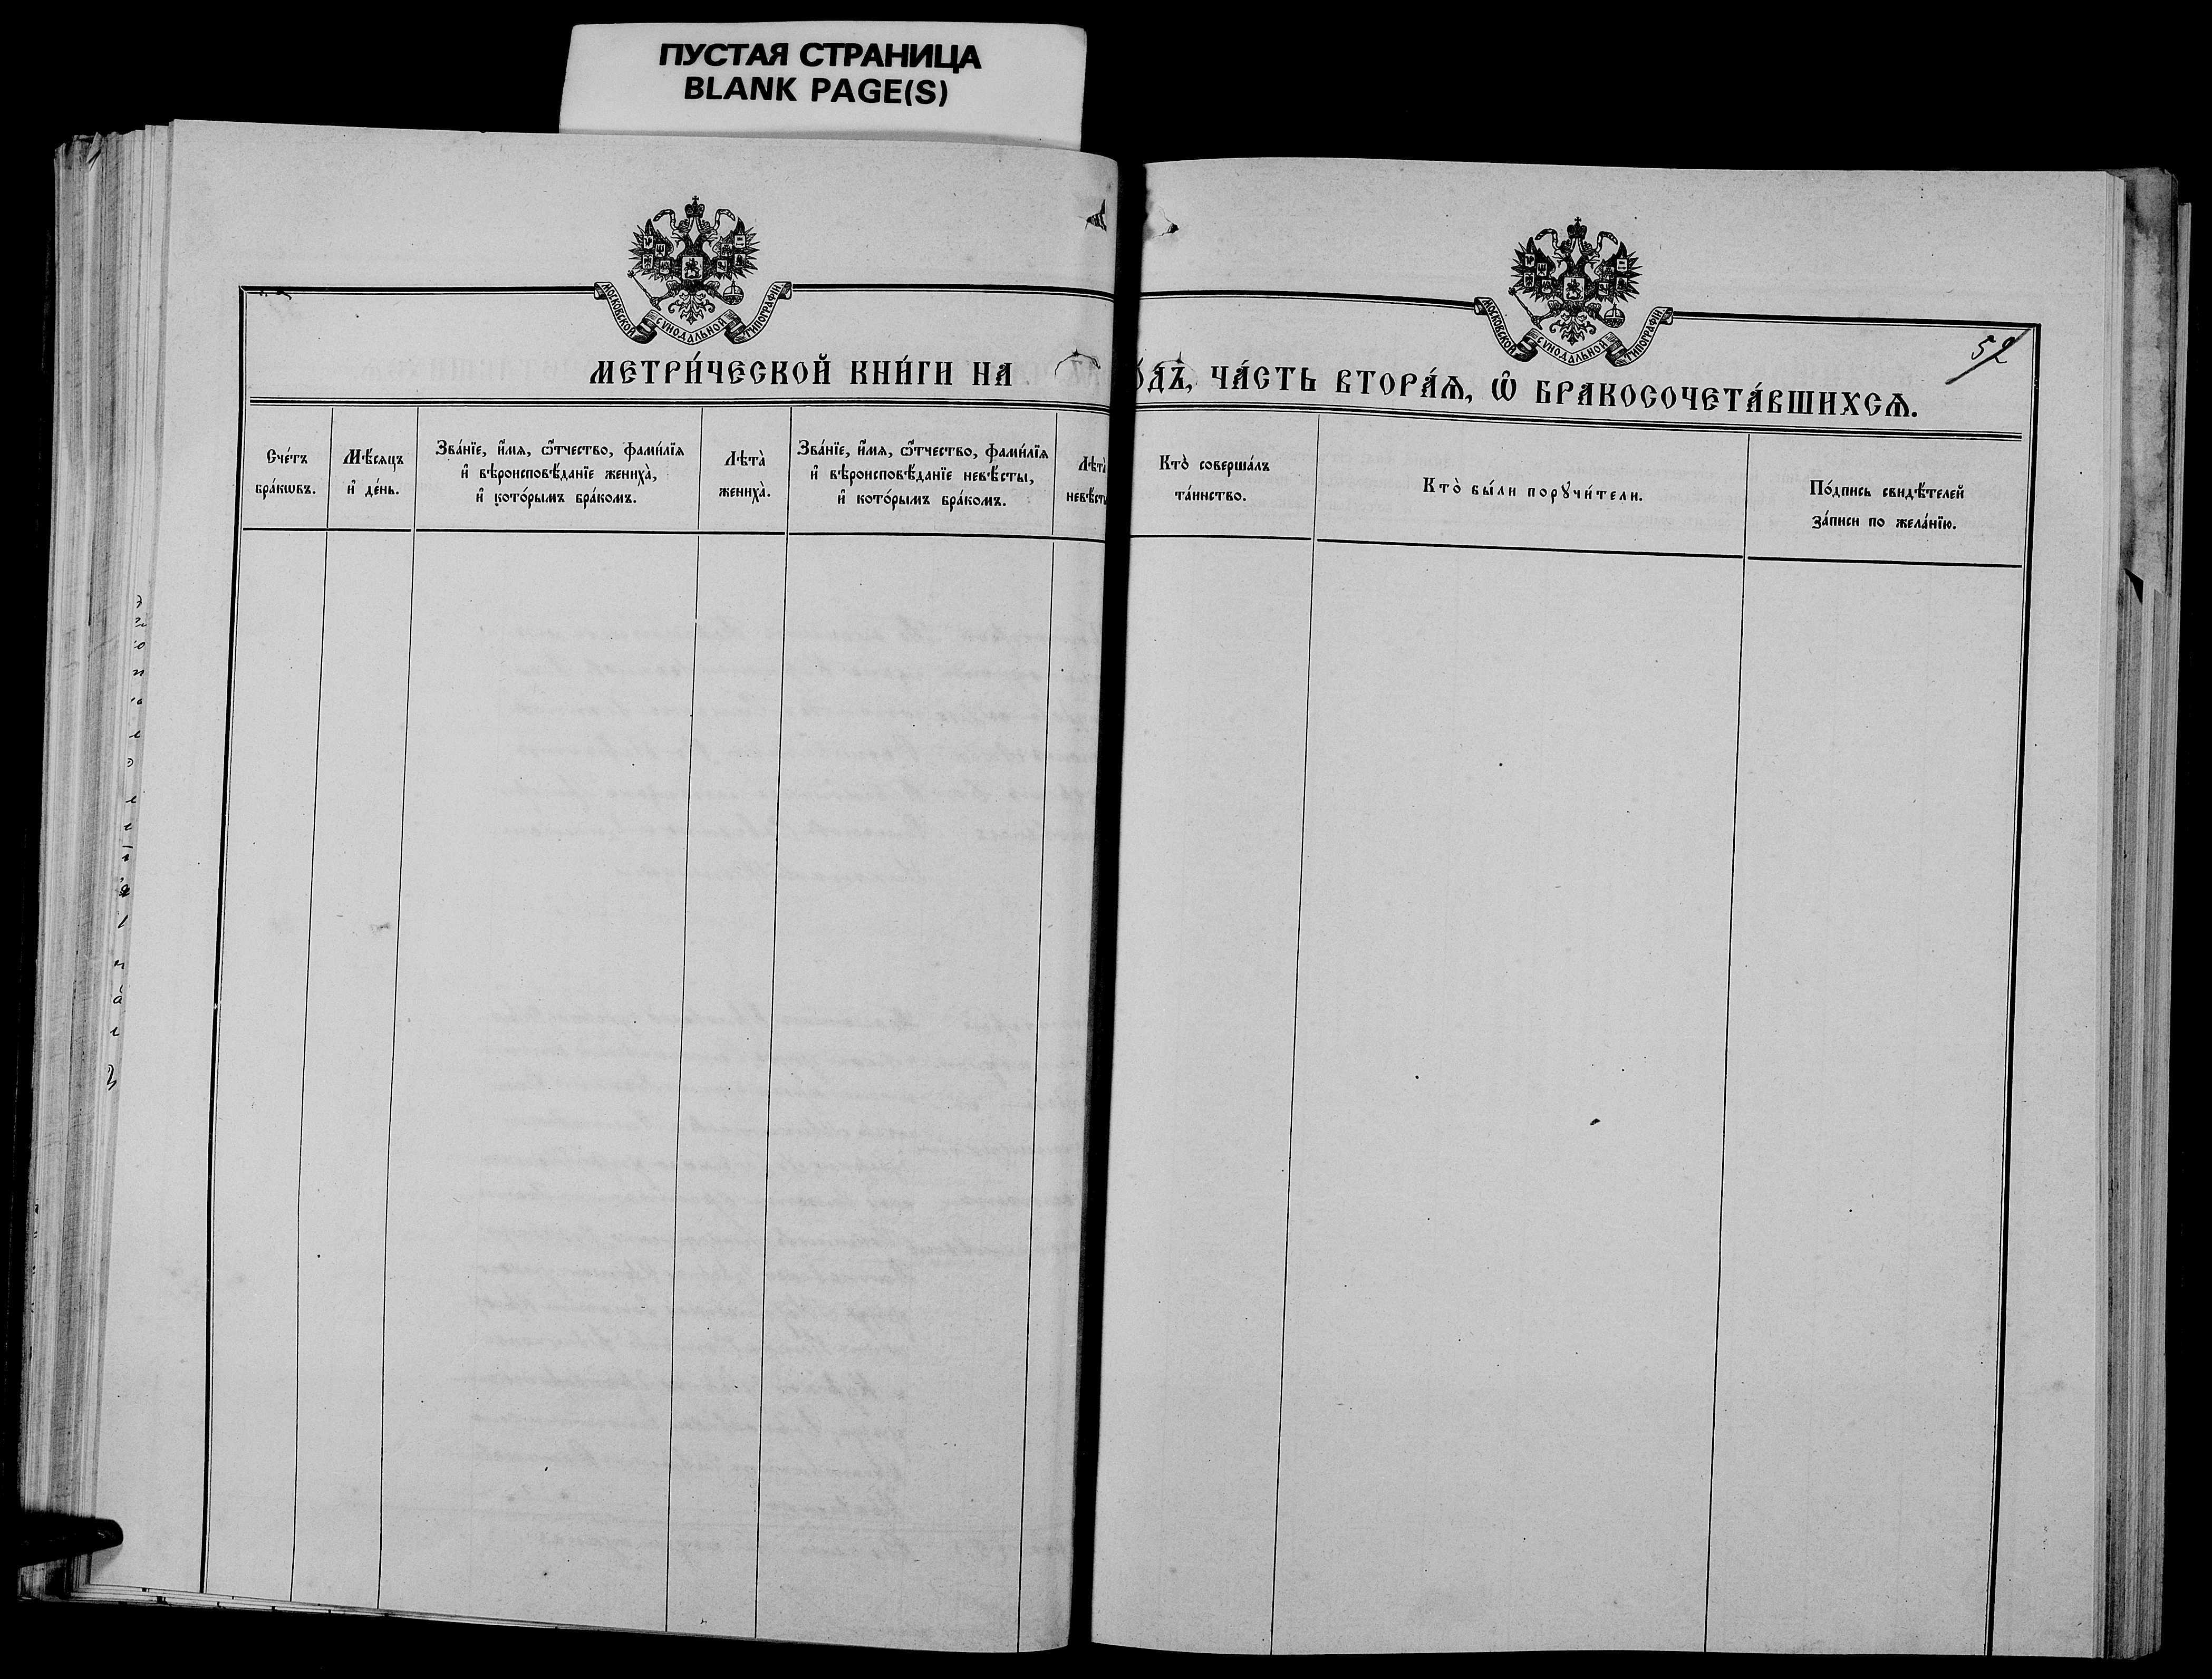 ПУСТАЯ СТРАНИЦА
BLANK PAGE(S)
МОСКОВСКОЙ СѴНОДАЛЬНОЙ ТИПОГРАФІИ
МОСКОВСКОЙ СѴНОДАЛЬНОЙ ТИПОГРАФІИ
52
МЕТРИ́ЧЕСКОЙ КНИ́ГИ НА
ЧА́СТЬ ВТОРА́Ѧ, Ѡ҆ БРАКОСОЧЕТА́ВШИХСѦ.
Сче́тъ
бра́кѡвъ.
Мѣ́сяцъ
и҆ де́нь.
Зва́нїе, и҆́мя, ѻ҆́тчество, фами́лїя
и҆ вѣроисповѣ́данїе жениха̀,
и҆ кото́рымъ бра́комъ.
Лѣта̀
жениха̀.
Зва́нїе, и҆́мя, ѻ҆́тчество, фами́лїя
и҆ вѣроисповѣ́данїе невѣ́сты,
и҆ кото́рымъ бра́комъ.
Лѣта̀
невѣ́сты
Кто̀ соверша́лъ
та́инство.
Кто̀ бы́ли порꙋчи́тели.
По́дпись свидѣ́телей
за́писи по жела́нїю.